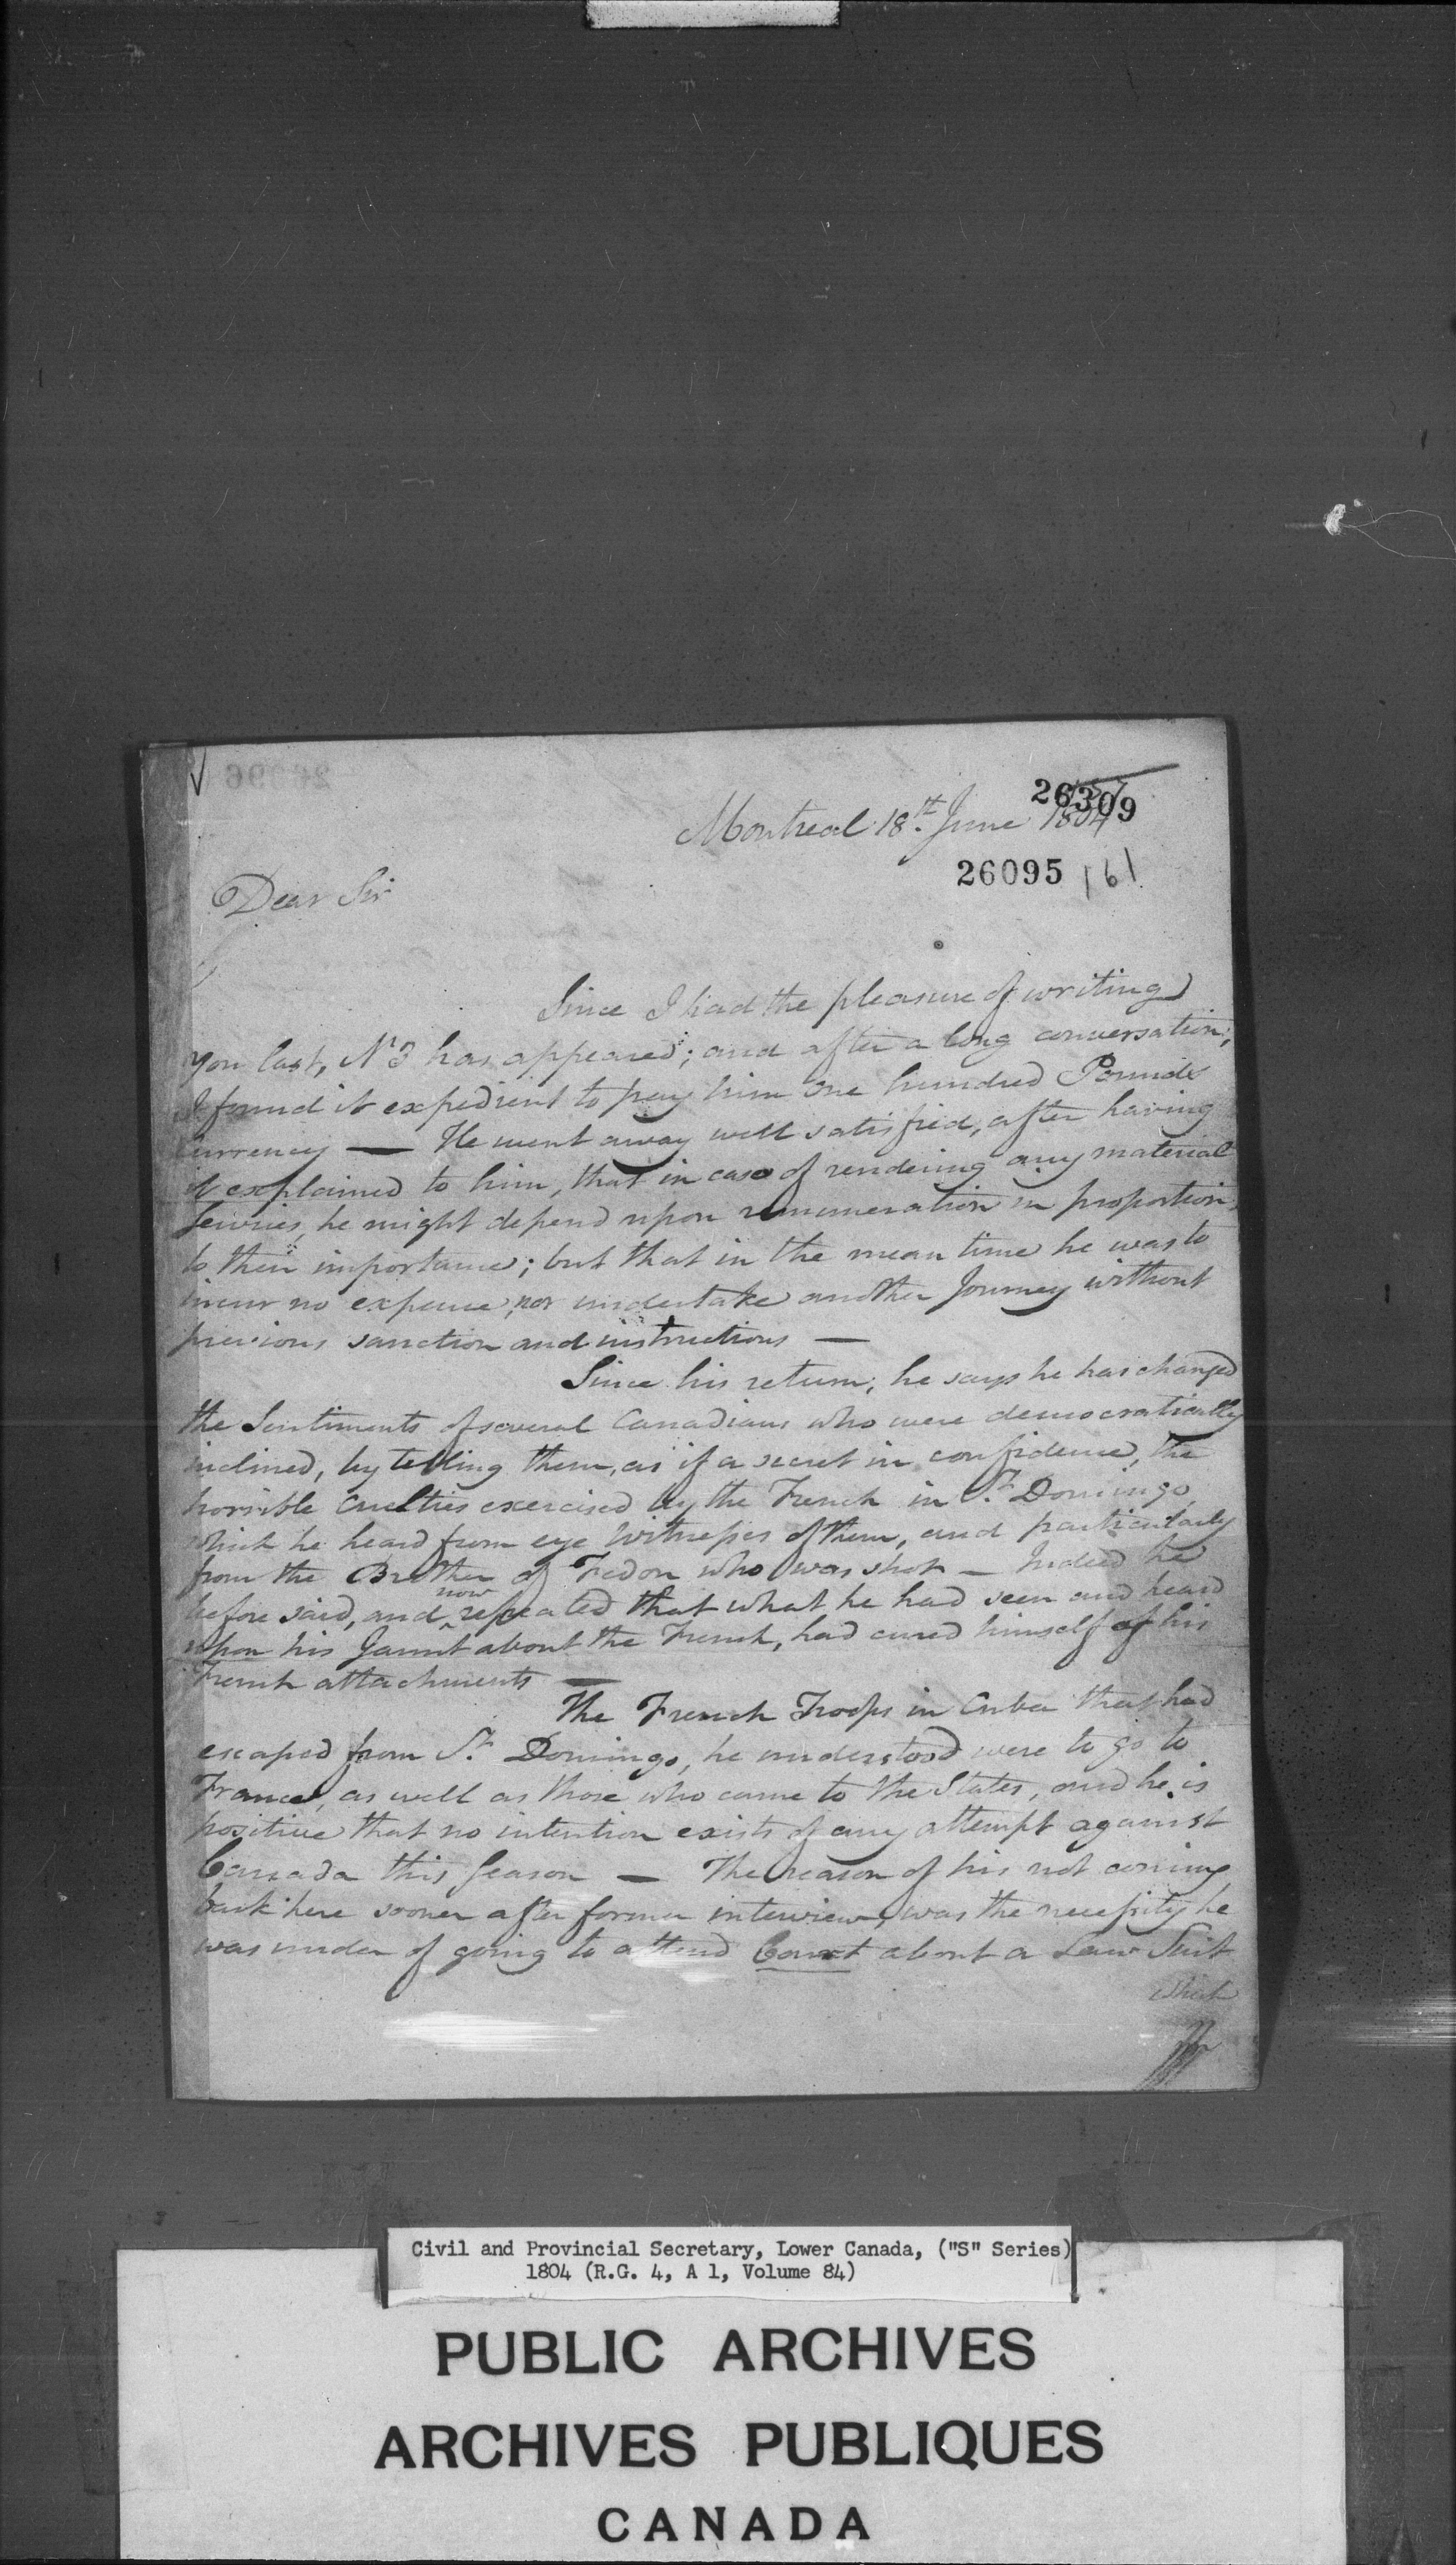 26309
Montreal 18th June 1804
26095 161
Dear Sir
Since I had the pleasure of writing
you last, No 3 has appeared; and after a long conversation,
I found it expedient to pay him One hundred Pounds
Currency — He went away well satisfied, after having
it explained to him, that in case of rendering any material
Services, he might depend upon remuneration in proportion
to their importance; but that in the mean time he was to
incur no expence, nor undertake another Journey without
previous sanction and instructions —
Since his return, he says he has changed
the Sentiments of several Canadians who were democratically
inclined, by telling them, as if a secret in confidence, the
horrible cruelties exercised by the French in St Domingo,
which he heard from eye Witnesses of them, and particularly
from the Brother of Fedon who was shot — Indeed he
before said, and now repeated that what he had seen and heard
upon his Jaunt about the French, had cured himself of his
French attachments —
The French Troops in Cuba that had
escaped from St Domingo, he understood were to go to
France, as well as those who came to the States, and he is
positive that no intention exists of any attempt against
Canada this Season — The reason of his not coming
back here sooner after former interview, was the necessity he
was under of going to attend Court about a Law Suit
which
Civil and Provincial Secretary, Lower Canada, ("S" Series)
1804 (R.G. 4, A 1, Volume 84)
PUBLIC ARCHIVES
ARCHIVES PUBLIQUES
CANADA